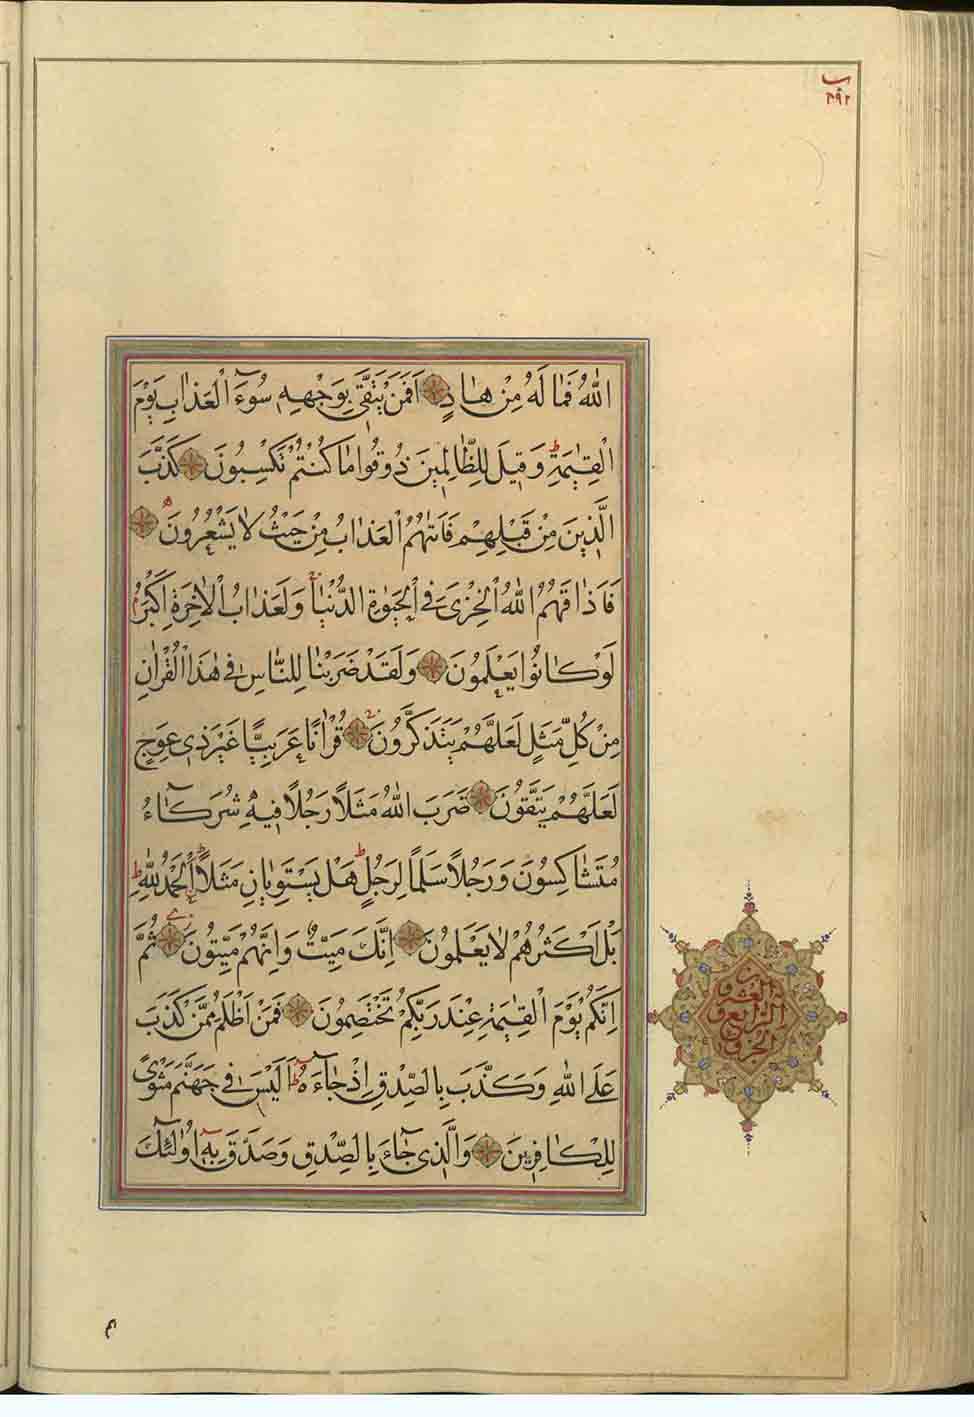 اللّٰهُ فَمٰا لَهُ مِنْ هٰادٍ اَفَمَنْ يَتَّقٖى بِوَجْهِهٖ سُوٓءَ الْعَذٰابِ يَوْمَ
الْقِيٰمَةِ وَقٖيلَ لِلظّٰالِمٖينَ ذُوقُوا مٰا كُنْتُمْ تَكْسِبُونَ كَذَّبَ
الَّذٖينَ مِنْ قَبْلِهِمْ فَاَتٰيهُمُ الْعَذٰابُ مِنْ حَيْثُ لٰا يَشْعُرُونَ
فَاَذٰاقَهُمُ اللّٰهُ الْخِزْىَ فِى الْحَيٰوةِ الدُّنْيٰا وَلَعَذٰابُ الْاٰخِرَةِ اَكْبَرُ
لَوْ كٰانُوا يَعْلَمُونَ وَلَقَدْ ضَرَبْنٰا لِلنّٰاسِ فٖى هٰذَا الْقُرْاٰنِ
مِنْ كُلِّ مَثَلٍ لَعَلَّهُمْ يَتَذَكَّرُونَ قُرْاٰنًا عَرَبِيًّا غَيْرَ ذٖى عِوَجٍ
لَعَلَّهُمْ يَتَّقُونَ ضَرَبَ اللّٰهُ مَثَلًا رَجُلًا فٖيهِ شُرَكٰٓاءُ
مُتَشٰاكِسُونَ وَرَجُلًا سَلَمًا لِرَجُلٍ هَلْ يَسْتَوِيٰانِ مَثَلًا اَلْحَمْدُ لِلّٰهِ
بَلْ اَكْثَرُهُمْ لٰا يَعْلَمُونَ اِنَّكَ مَيِّتٌ وَاِنَّهُمْ مَيِّتُونَ ثُمَّ
اِنَّكُمْ يَوْمَ الْقِيٰمَةِ عِنْدَ رَبِّكُمْ تَخْتَصِمُونَ فَمَنْ اَظْلَمُ مِمَّنْ كَذَبَ
عَلَى اللّٰهِ وَكَذَّبَ بِالصِّدْقِ اِذْ جٰٓاءَهُ اَلَيْسَ فٖى جَهَنَّمَ مَثْوًى
لِلْكٰافِرٖينَ وَالَّذٖى جٰٓاءَ بِالصِّدْقِ وَصَدَّقَ بِهٖٓ اُولٰٓئِكَ